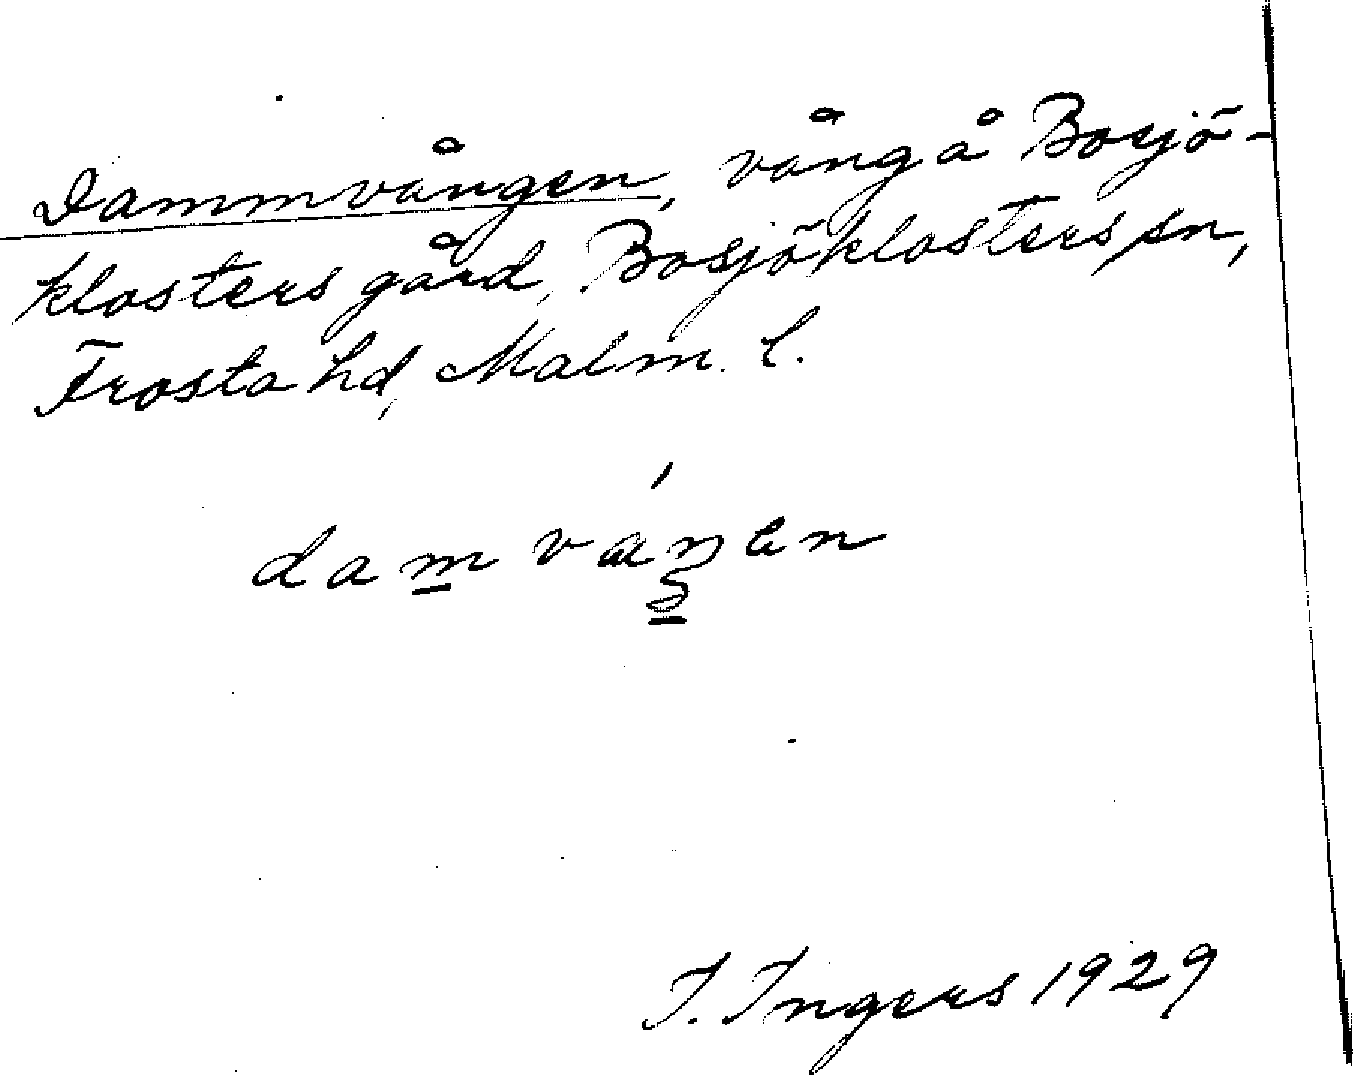 Dammvången, vång å Bosjö-
klosters gård, Bosjöklosters sn,
Frosta hd, Malm. l.
I. Ingers 1929